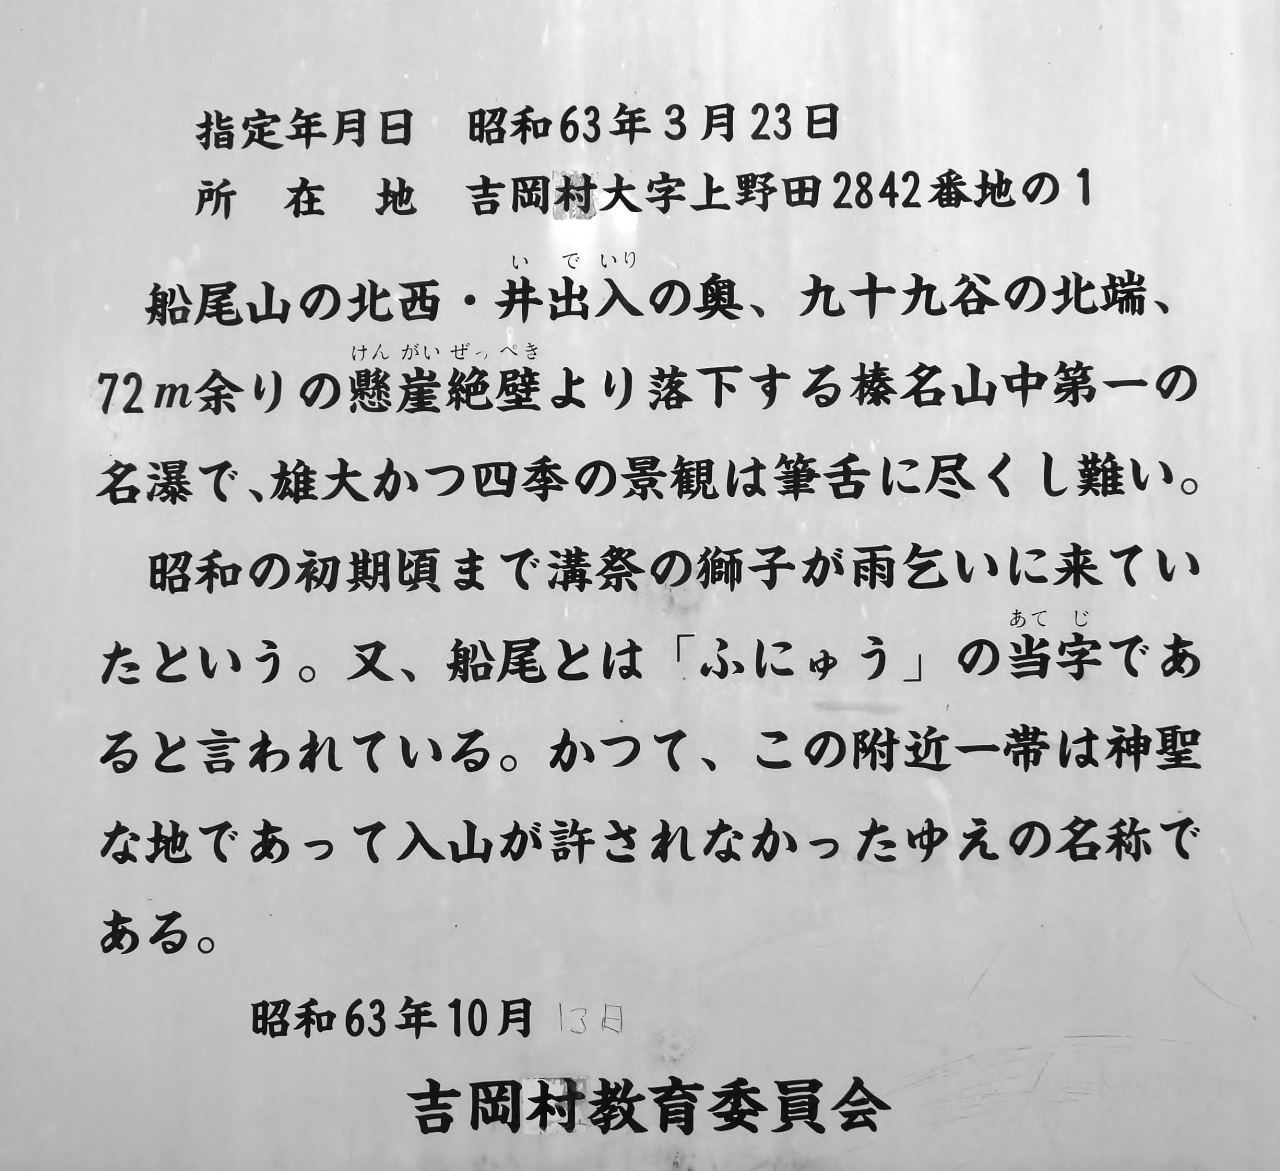 指定年月日　昭和63年3月23日
所　在　地　吉岡村大字上野田2842番地の1
い で いり
船尾山の北西・井出入の奥、九十九谷の北端、
けん がい ぜっ ぺき
72m余りの懸崖絶壁より落下する榛名山中第一の
名瀑で、雄大かつ四季の景観は筆舌に尽くし難い。
昭和の初期頃まで溝祭の獅子が雨乞いに来てい
あて じ
たという。又、船尾とは「ふにゅう」の当字であ
ると言われている。かつて、この附近一帯は神聖
な地であって入山が許されなかったゆえの名称で
ある。
昭和63年10月 13日
吉岡村教育委員会